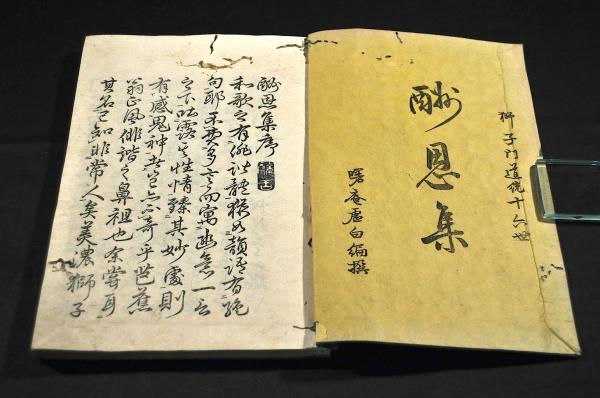 獅子門道統十六世
酬恩集
曙庵虚白編撰
酬恩集序
和歌之有俳諧體猶如韻語有絶
句耶不要多言而寓幽意一言
之下吐露其性情臻其妙處則
有感鬼神者豈奇乎芭蕉
翁正風俳諧之鼻祖也余嘗耳
其名已知非常人矣美濃獅子